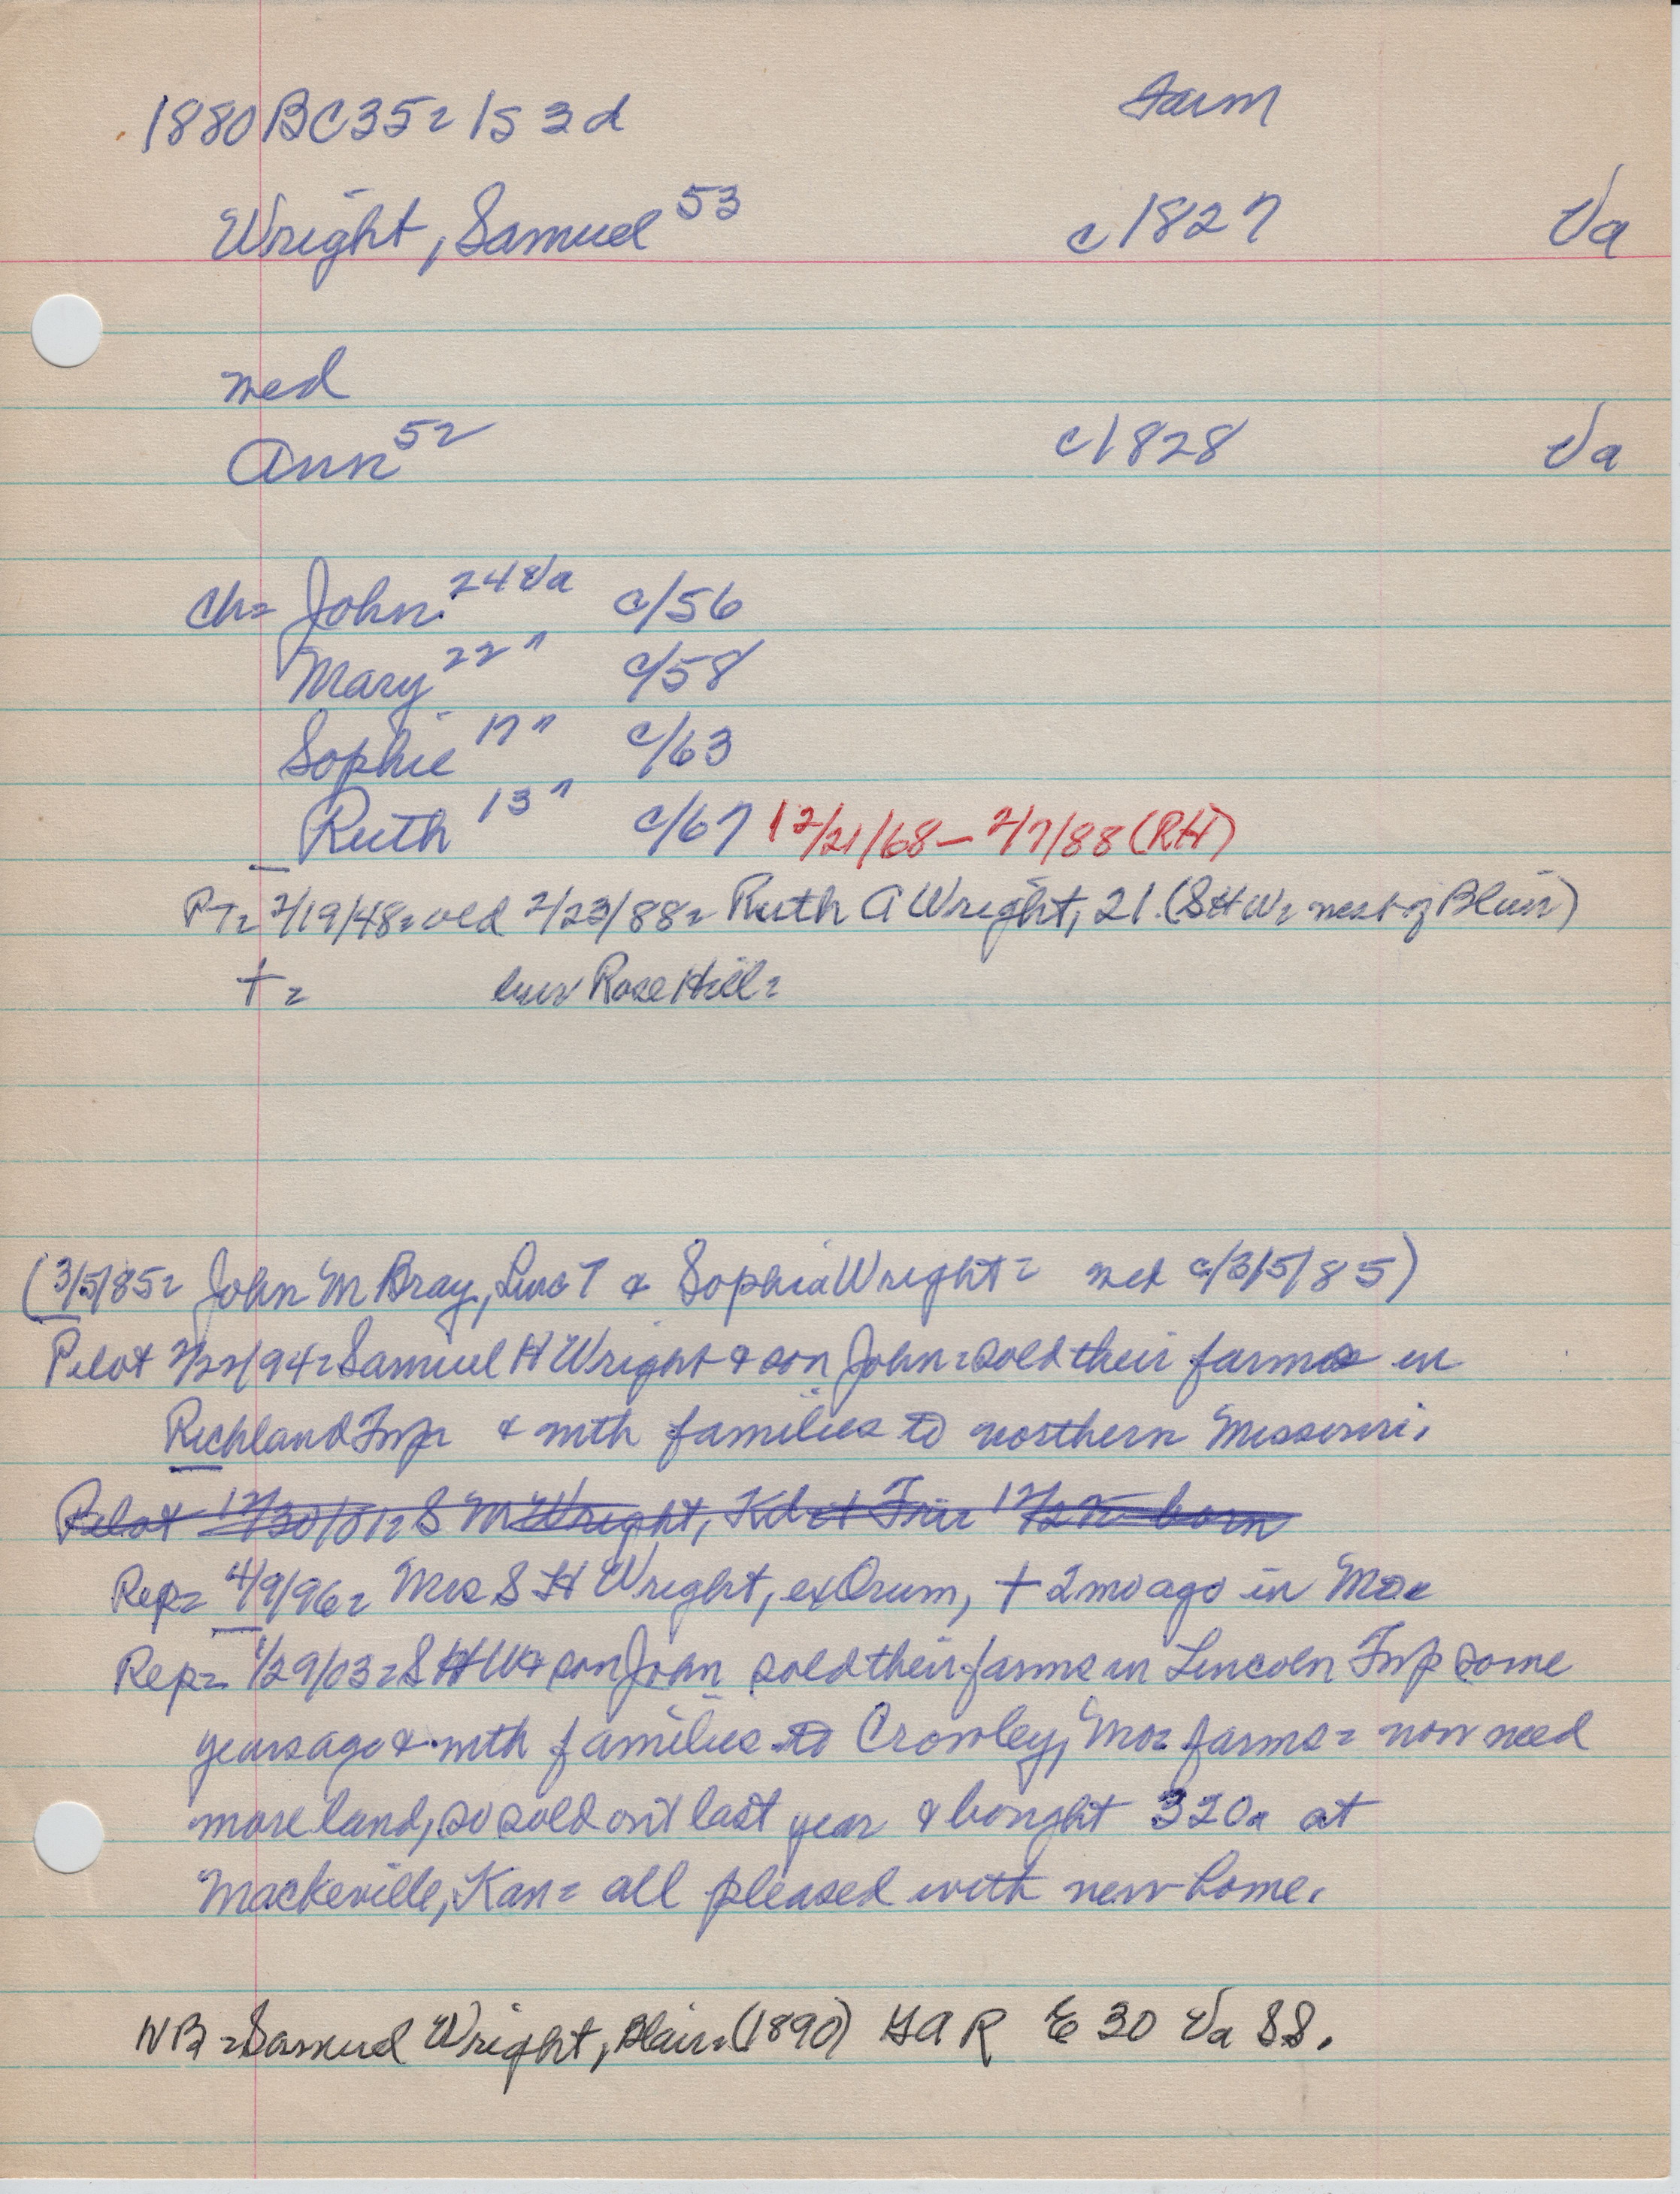 1880 BC 35= 1s 3d Farm
Wright, Samuel 53 c1827 Va
med
Ann 52 c1828 Va
Ch= John 24 Va c/56
Mary 22 " c/58
Sophie 17 " c/63
Ruth 13 " c/67 12/21/68 – 2/7/88 (RH)
PT= 2/19/48= old 2/23/88= Ruth A Wright, 21. (SHW= west of Blair)
+ = Rose Hill=
(3/5/85= John M Bray, & Sophia Wright= med c/3/5/85)
Pilot 2/22/94= Samuel H Wright & son John= sold their farms in
Richland Twp & mth families to northern Missouri.
Pilot 12/30/01= S M Wright, Kd 12/25 born
Rep= 4/9/96= Mrs S H Wright, ex Orum, + 2 mo ago in Mo=
Rep= 1/29/03= SHW & son John sold their farms in Lincoln Twp some
years ago & mth families to Crowley, Mo= farms= now need
more land, so sold out last year & bought 320a at
Mackeville, Kan= all pleased with new home.
NB= Samuel Wright, Blair= (1890) GAR E 30 Va SS.